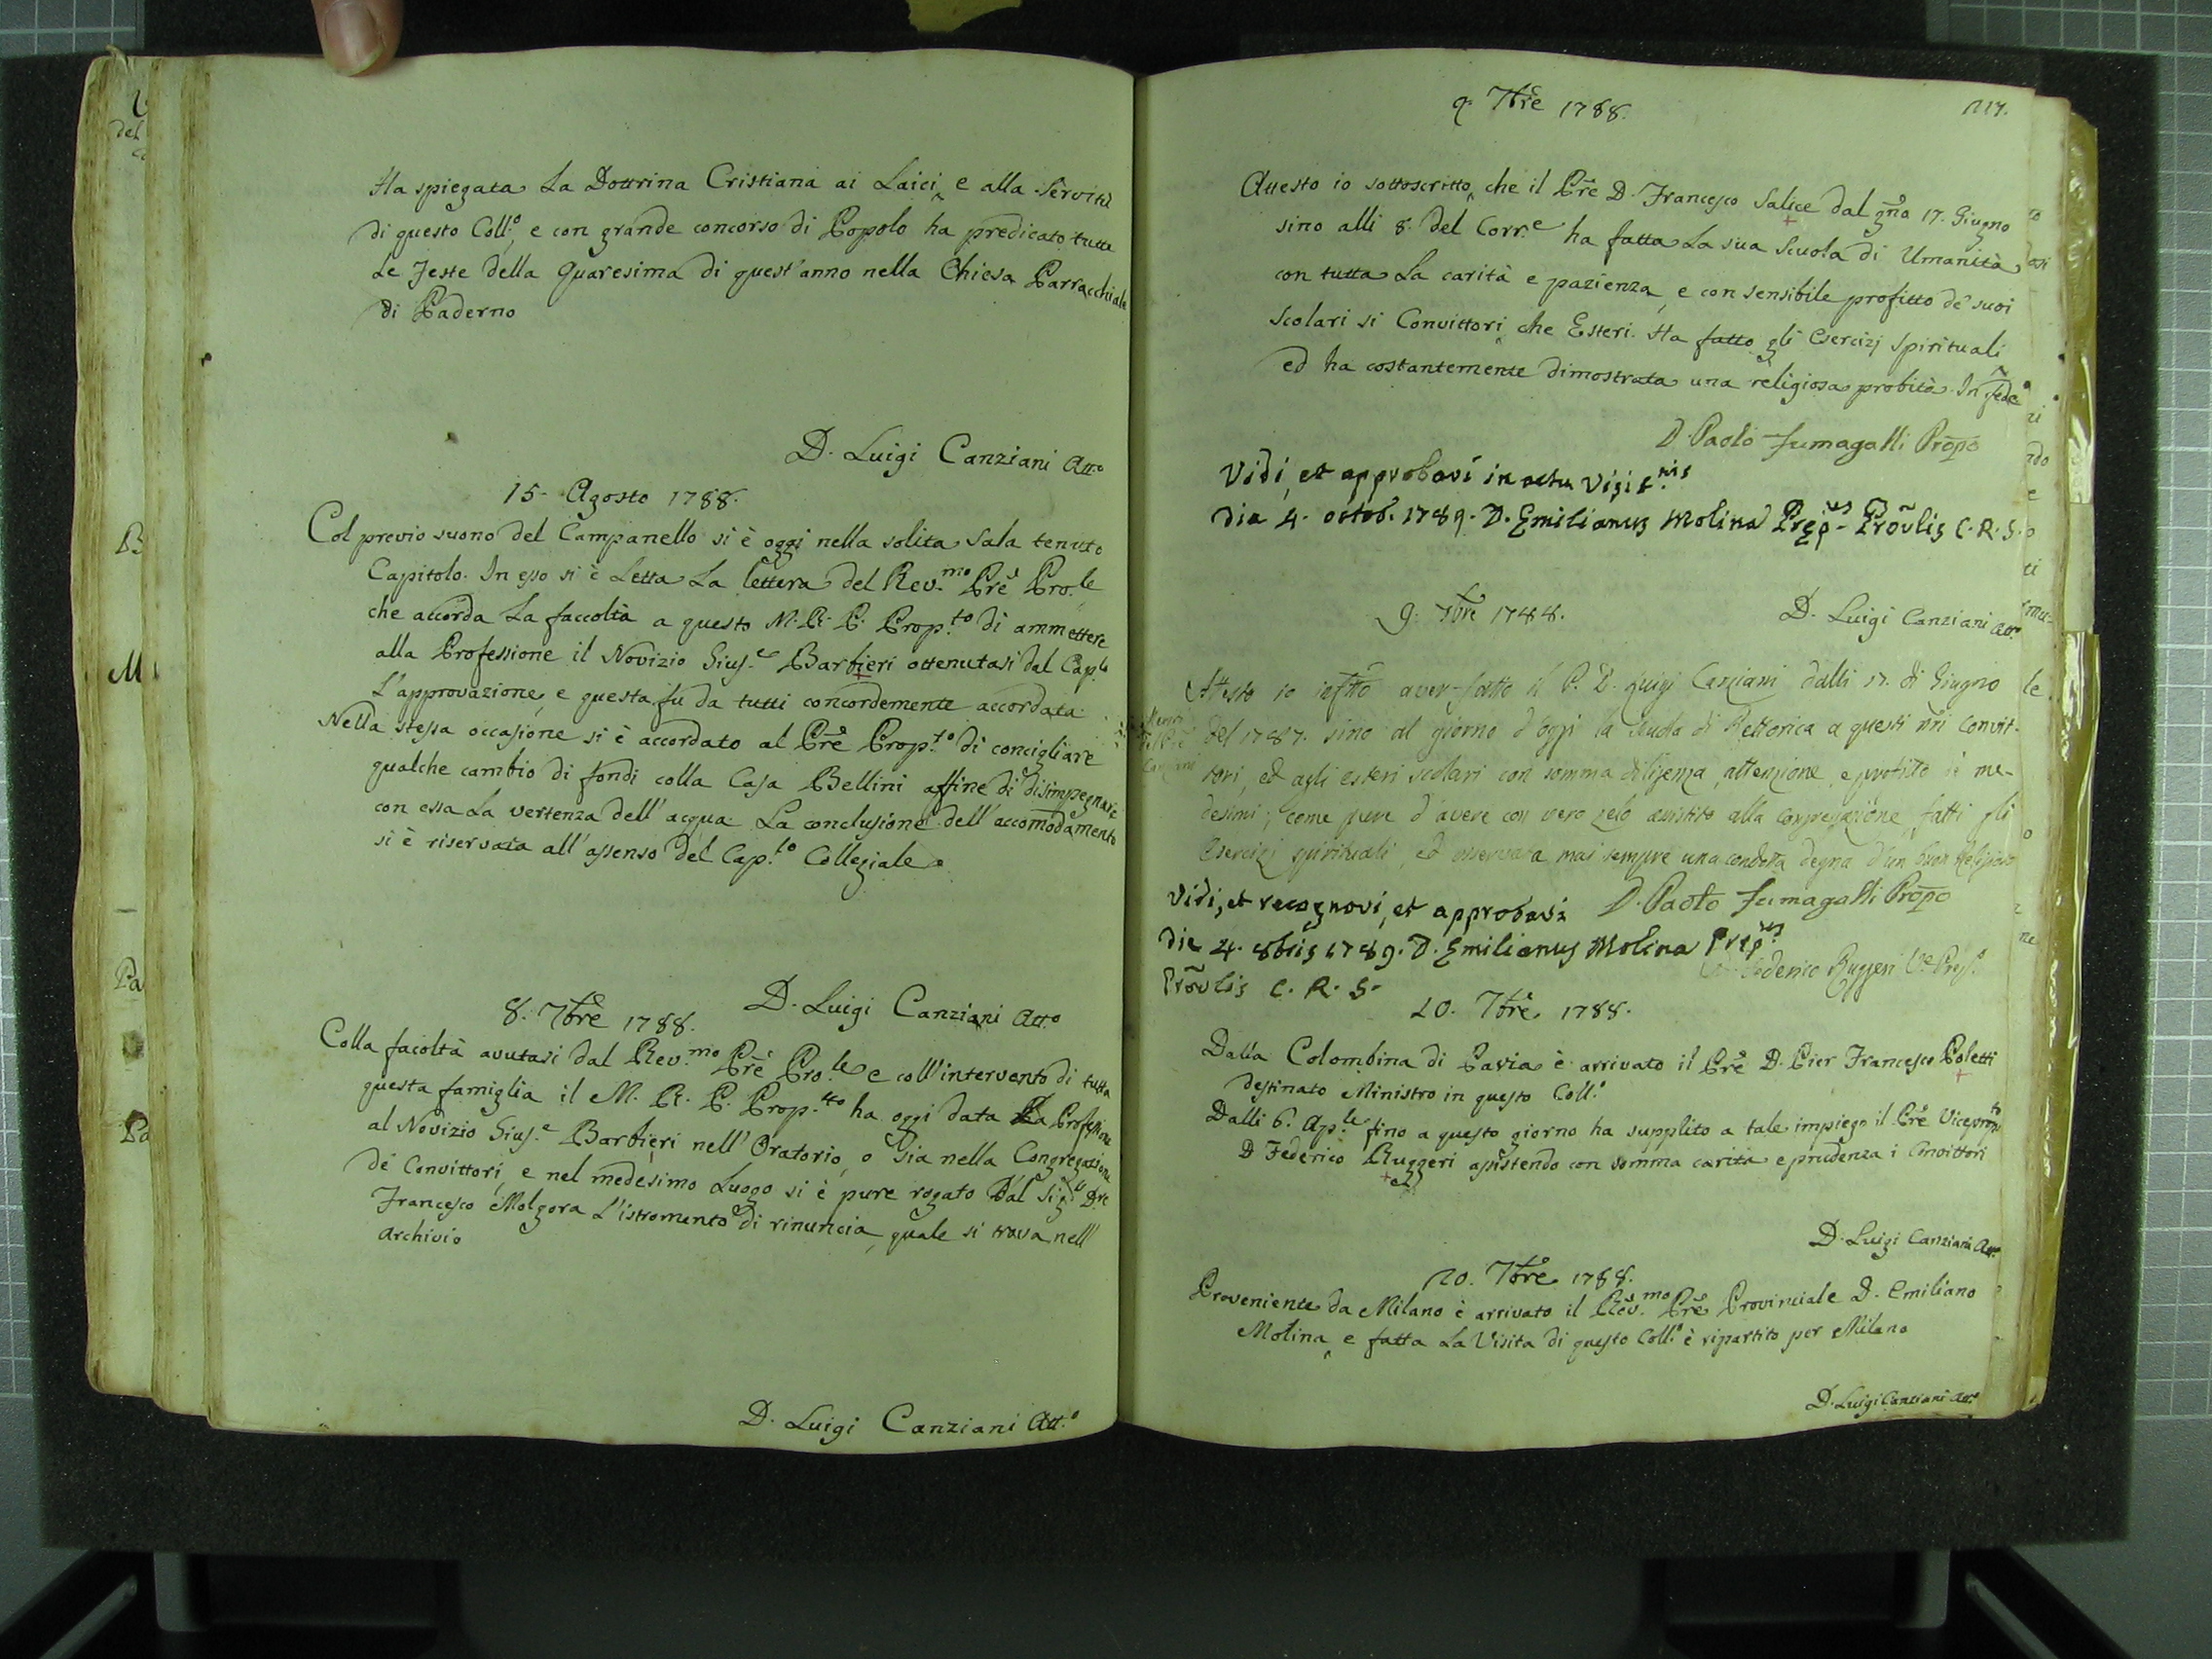 Ha spiegata La Dottrina Cristiana ai Laici, e alla Servitù
di questo Coll.º, e con grande concorso di Popolo ha predicato tutte
Le Feste della Quaresima di quest'anno nella Chiesa Parracchiale
di Paderno
D. Luigi Canziani Att.º
15. Agosto 1788.
Col previo suono del Campanello si è oggi nella solita Sala tenuto
Capitolo. In esso si è Letta La lettera del Rev.mo Prē Pro.le
che accorda La faccoltà a questo M. R. P. Prop.to di ammettere
alla Professione il Novizio Gius.e Barbieri ottenutasi dal Cap.lo
L'approvazione, e questa fu da tutti concordemente accordata.
Nella stessa occasione si è accordato al Prē Prop.to di concigliare
qualche cambio di fondi colla Casa Bellini affine di disimpegnare
con essa La vertenza dell'acqua. La conclusione dell'accomodamento
si è riservata all'assenso del Cap.lo Collegiale.
D. Luigi Canziani Att.º
8. 7brē 1788.
Colla facoltà avutasi dal Rev.mo Prē Pro.le e coll'intervento di tutta
questa famiglia il M. R. P. Prop.to ha oggi data La Professione
al Novizio Gius.e Barbieri nell'Oratorio, o sia nella Congregazione
de' Convittori, e nel medesimo Luogo si è pure rogato Dal Sig.r D.re
Francesco Molgora L'istromento di rinuncia, quale si trova nell'
Archivio
D. Luigi Canziani Att.º
9. 7brē 1788.
217.
Attesto io sottoscritto, che il Prē D. Francesco Salice dal 17. Giugno
sino alli 8. del Corr.e ha fatta La sua Scuola di Umanità
con tutta La carità e pazienza, e con sensibile profitto de' suoi
Scolari si Convittori, che Esteri. Ha fatto gli Esercizj Spirituali,
ed ha costantemente dimostrata una religiosa probità. In fede
D. Paolo Fumagalli Propo
Vidi, et approbavi in actu Visit.nis
Die 4. octob. 1789. D. Emilianus Molina Prep.us Provlis C. R. S.
9. 7bre 1788.
D. Luigi Canziani Att.º
Attesto io infrõ aver fatto il P. D. Luigi Canziani dalli 17. di Giugno
del 1787. sino al giorno d'oggi la Scuola di Rettorica a questi nri Convit-
tori, ed agli esteri scolari con somma diligenza, attenzione, e profitto de' me-
desimi; come pure d'avere con vero zelo assistito alla Congregazione, fatti gli
Esercizj spirituali, ed osservata mai sempre una condotta degna d'un buon Religioso
Vidi, et recognovi, et approbavi
D. Paolo Fumagalli Propo
Die 4. 8bris 1789. D. Emilianus Molina Prep.us
Provlis C. R. S.
Federico Ruggeri
10. 7brē 1788.
Dalla Colombina di Pavia è arrivato il Prē D. Pier Francesco Poletti
destinato Ministro in questo Coll.º
Dalli 6. Ap.le fino a questo giorno ha supplito a tale impiego il Prē Viceprop.to
D Federico Ruggeri assistendo con somma carità e prudenza i Convittori
D. Luigi Canziani Att.º
20. 7brē 1788.
Proveniente da Milano è arrivato il Rev.mo Prē Provinciale D. Emiliano
Molina, e fatta La Visita di questo Coll.º è ripartito per Milano
D. Luigi Canziani Att.º